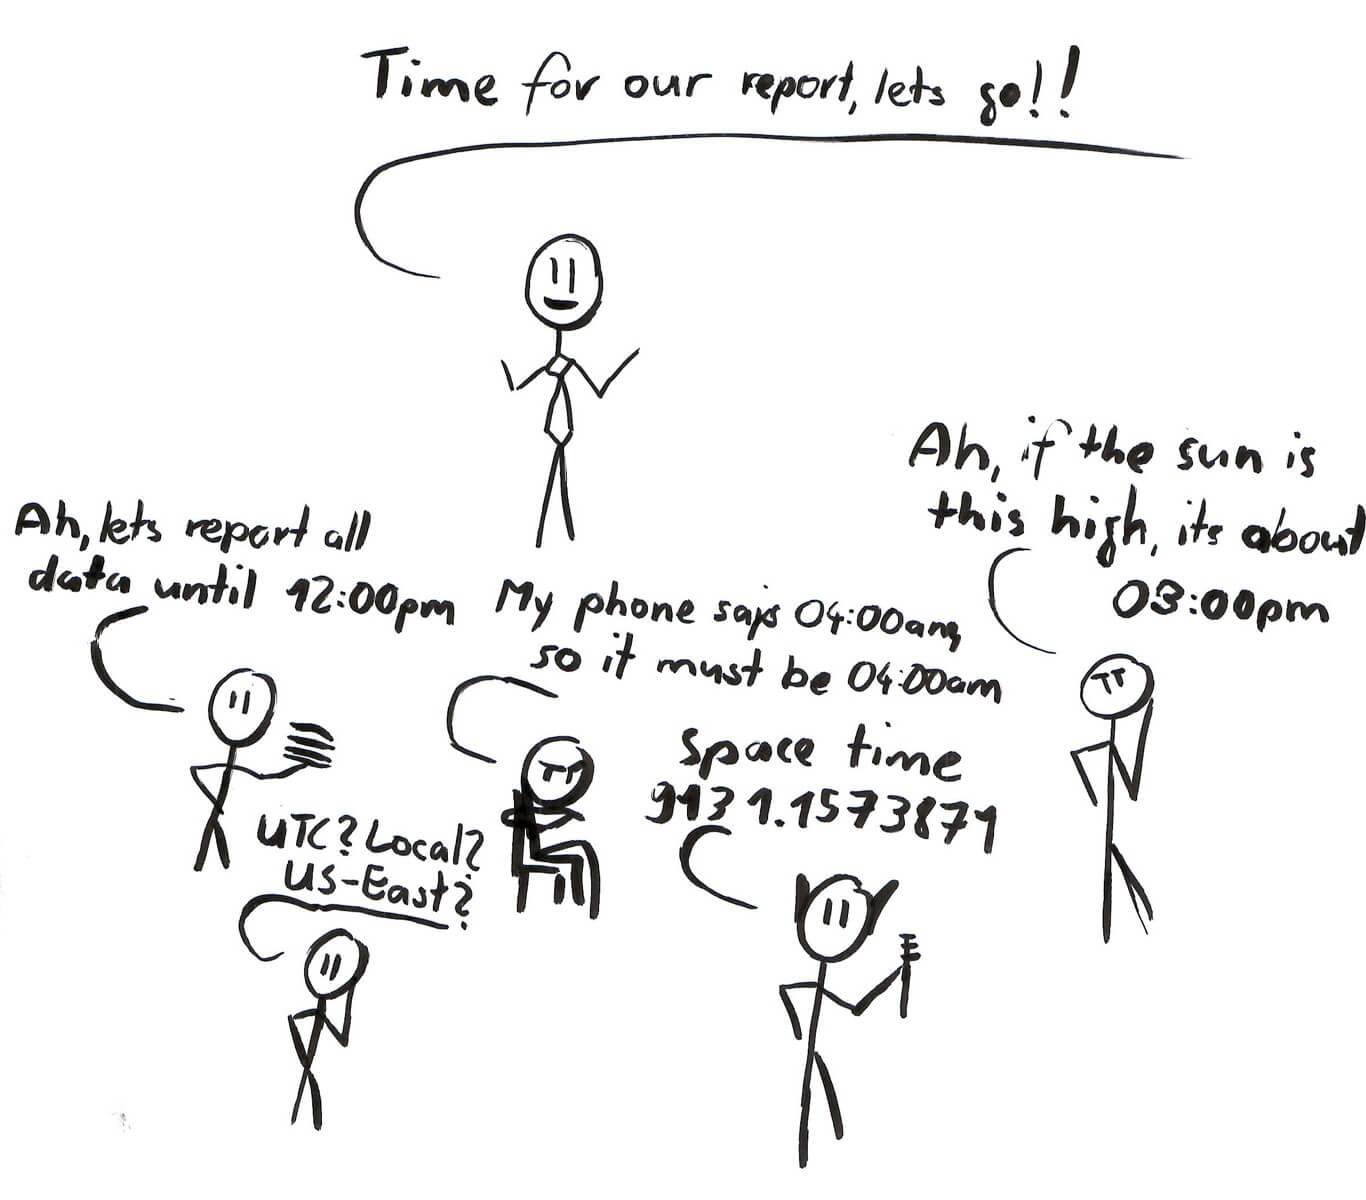 Time for our report, lets go!!
Ah, if the sun is
this high, its about
03:00pm
Ah, lets report all
data until 12:00pm
My phone says 04:00am,
so it must be 04:00am
space time
9131.1573871
UTC? Local?
US-East?